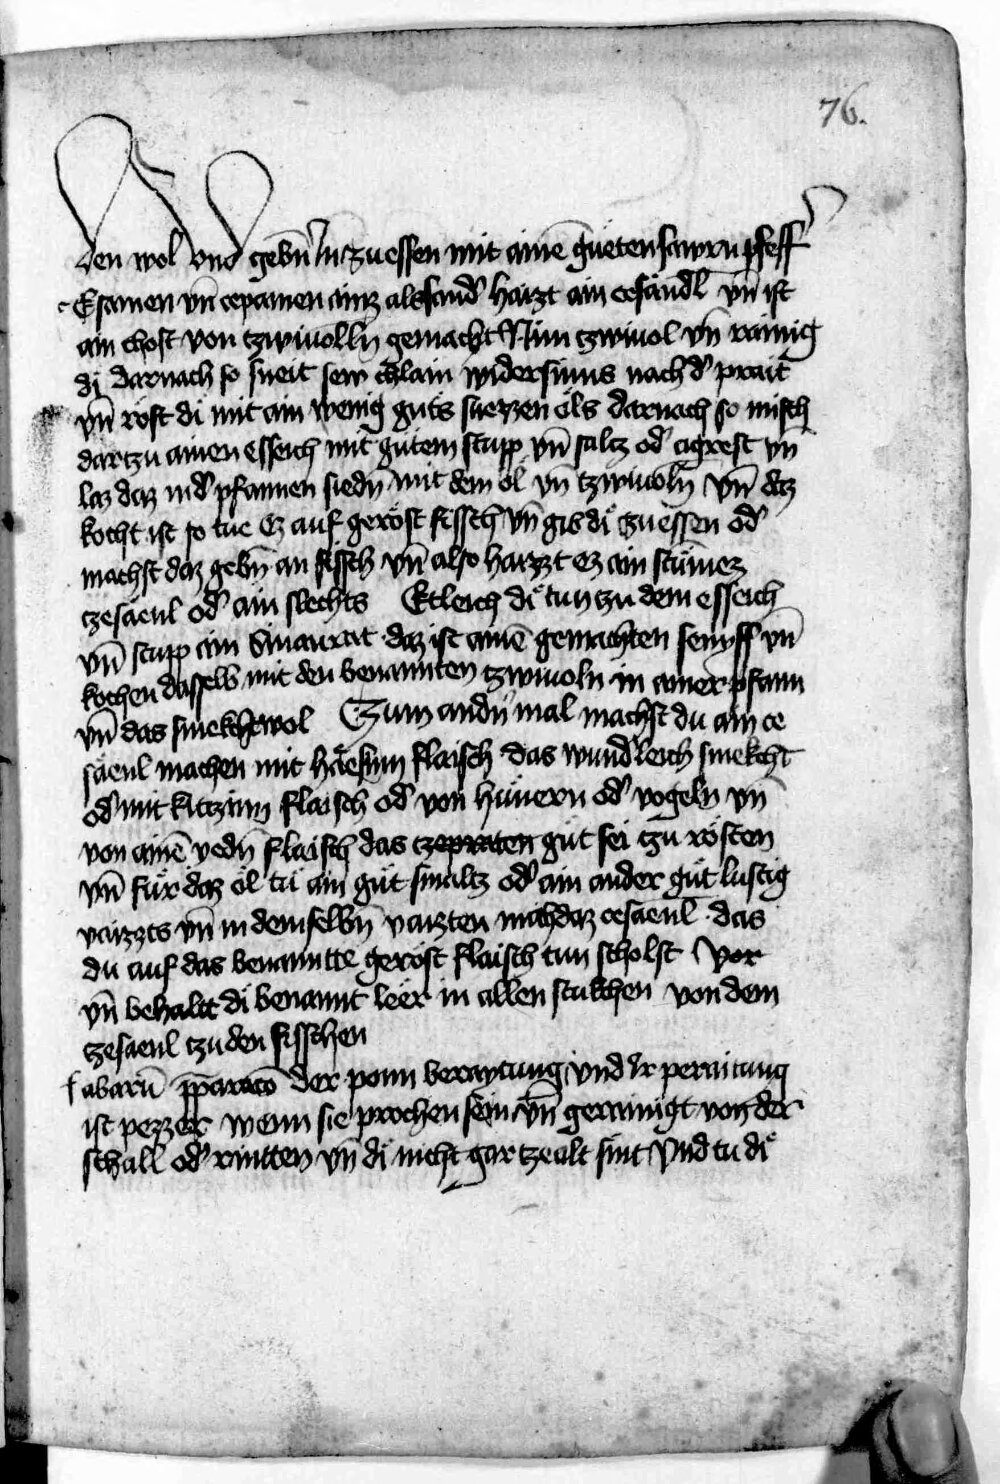 76.
den wol vnd gebn̄ In zu essen mit aimē gueten sawrn pfeff̕
Esamen vn̄ cepamen ainz alssand̕ haizt ain cesändl vn̄ ist
ain chost von tzwiuolln gemacht Nim tzwiuol vn̄ rainig
di darnach so sneit sew chlain widersinns nach d̕ prait
vn̄ röst di mit ain wenig guts suezzen öls darnach so misch
dartzu ainen esseich mit gutem stupp vn̄ saltz od̕ agrest vn̄
laz daz in d̕ pfannen siedn̄ mit dem öl vn̄ tzwiuoln vn̄ daz
kocht ist so tue ez auf geröst fissch vn̄ gib di zu essen od̕
machst daz gebn̄ an fissch vn̄ also haizzt ez ain
tzesäenl od̕ ain slechts Etleich di tun tzu dem esseich
vn̄ stupp ain Sinaurat daz ist ainē gemachten senyff vn̄
kochen dasselb mit den benannten tzwiuoln in ainer pfann
vn̄ das smekcht wol Tzum andn̄ mal machst du ain ce
säenl machen mit häesinn flaisch das wund̕leich smekcht
od̕ mit kitzinn flaisch od̕ von hünern od̕ vogeln vn̄
von ainē yedn̄ flaisch das tzepraten gut sei tzu rösten
vn̄ für daz öl tu ain gut smaltz od̕ ain ander gut lustig
vaizzts vn̄ in demselbn̄ vaizten mach daz cesaenl das
du auf das benannte geröst flaisch tun scholst vor
vn̄ behalt di benannt leer in allen stukchen von dem
tzesaenl tzu den fisschen
fabarū pparacō der ponn beraytung vnd Ir peraitung
ist pezzer wenn sie prochen sein vn̄ gerainigt von der
schall od̕ rintten vn̄ di nicht gar tzealt sint Vnd tu di